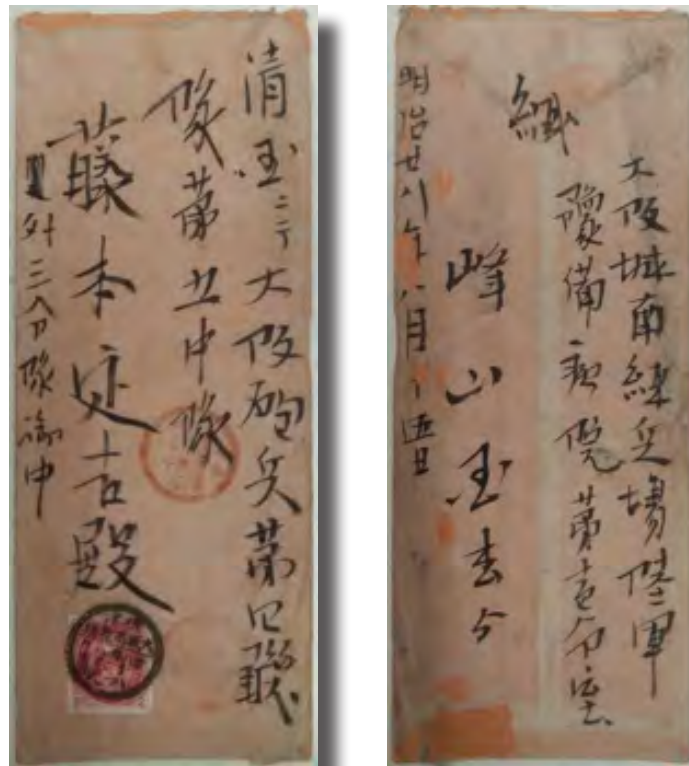 清国ニ于大阪砲兵第四聯
隊第五中隊
藤本定吉殿
外三分隊御中
大阪城南練兵場陸軍
豫備病院第壱分室
峰山国吉
緘
明治廿八年八月十五日